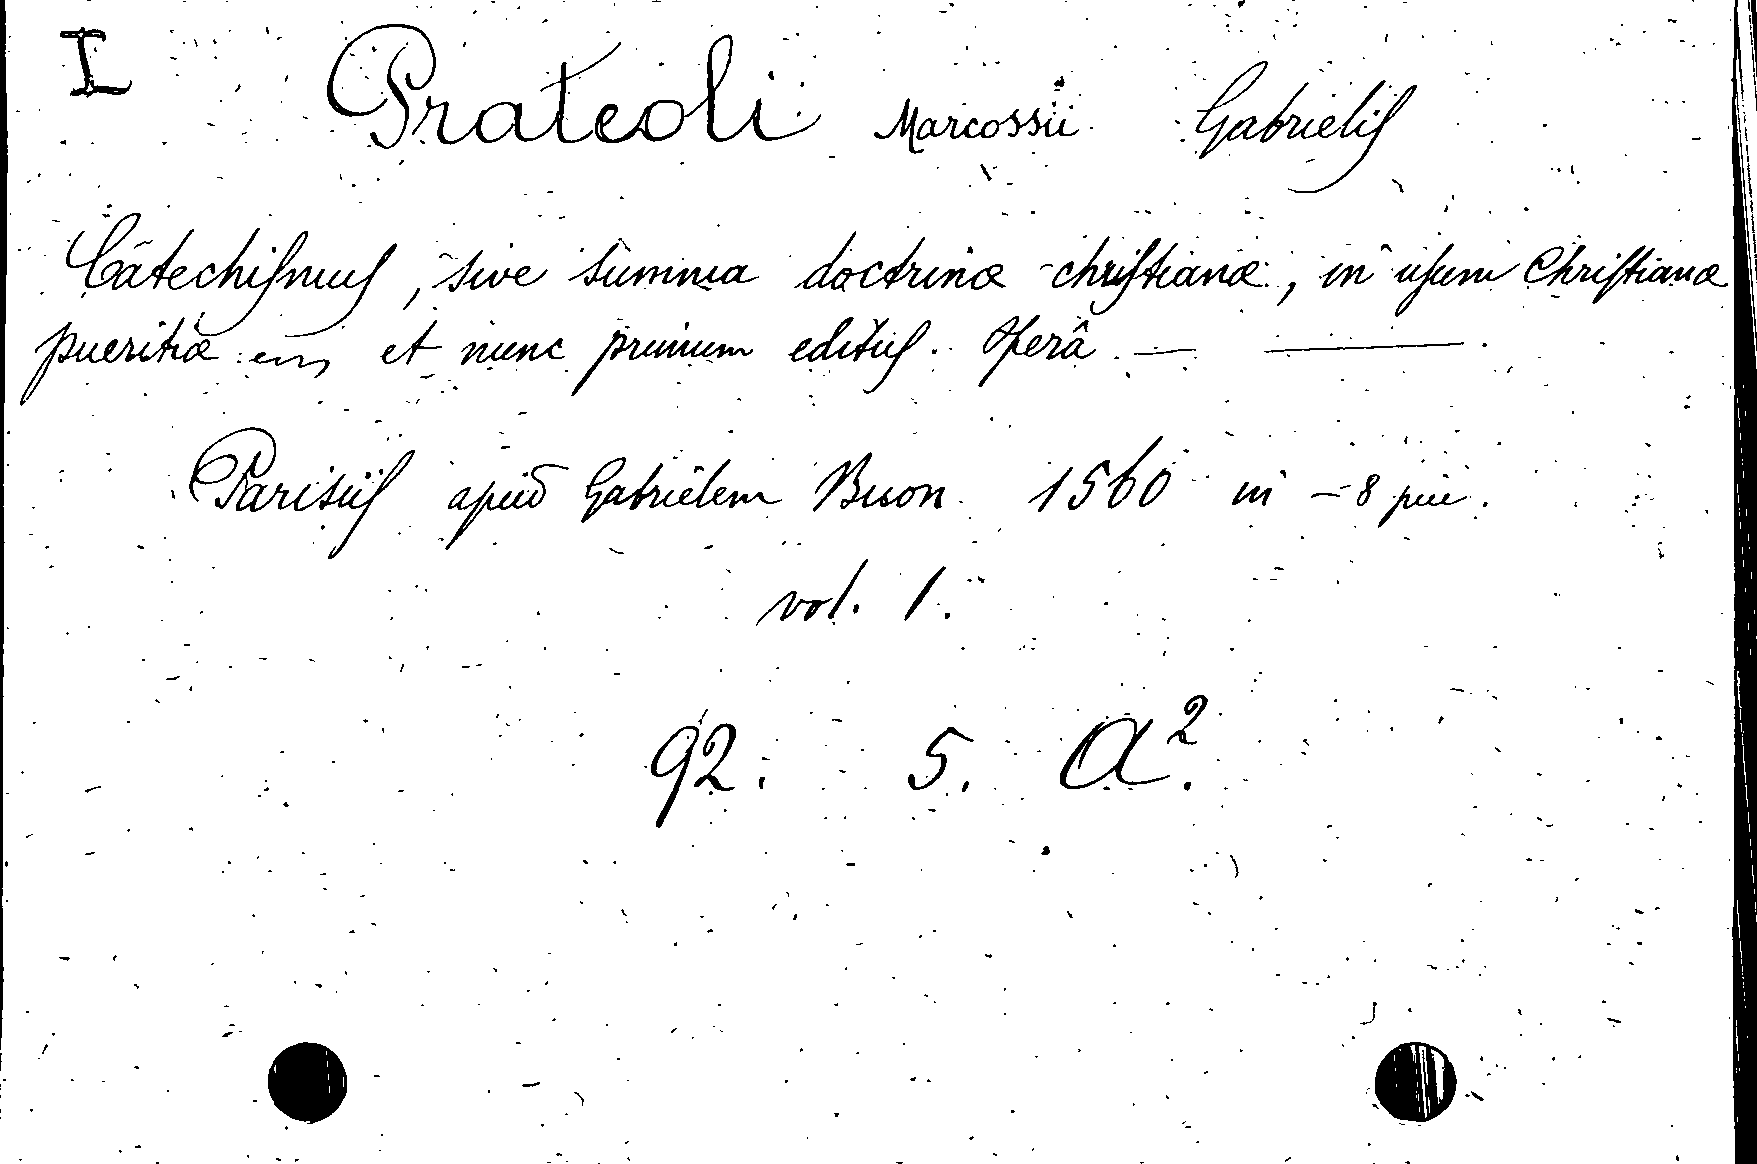 I Prateoli Marcossii Gabrielis
Catechismus, sive summa doctrinæ christianæ, in usum Christianæ
pueritiæ et nunc primum editus. Operâ — —.
Parisiis apud Gabrielem Buon 1560 in-8 min.
vol. 1.
92. 5. A².